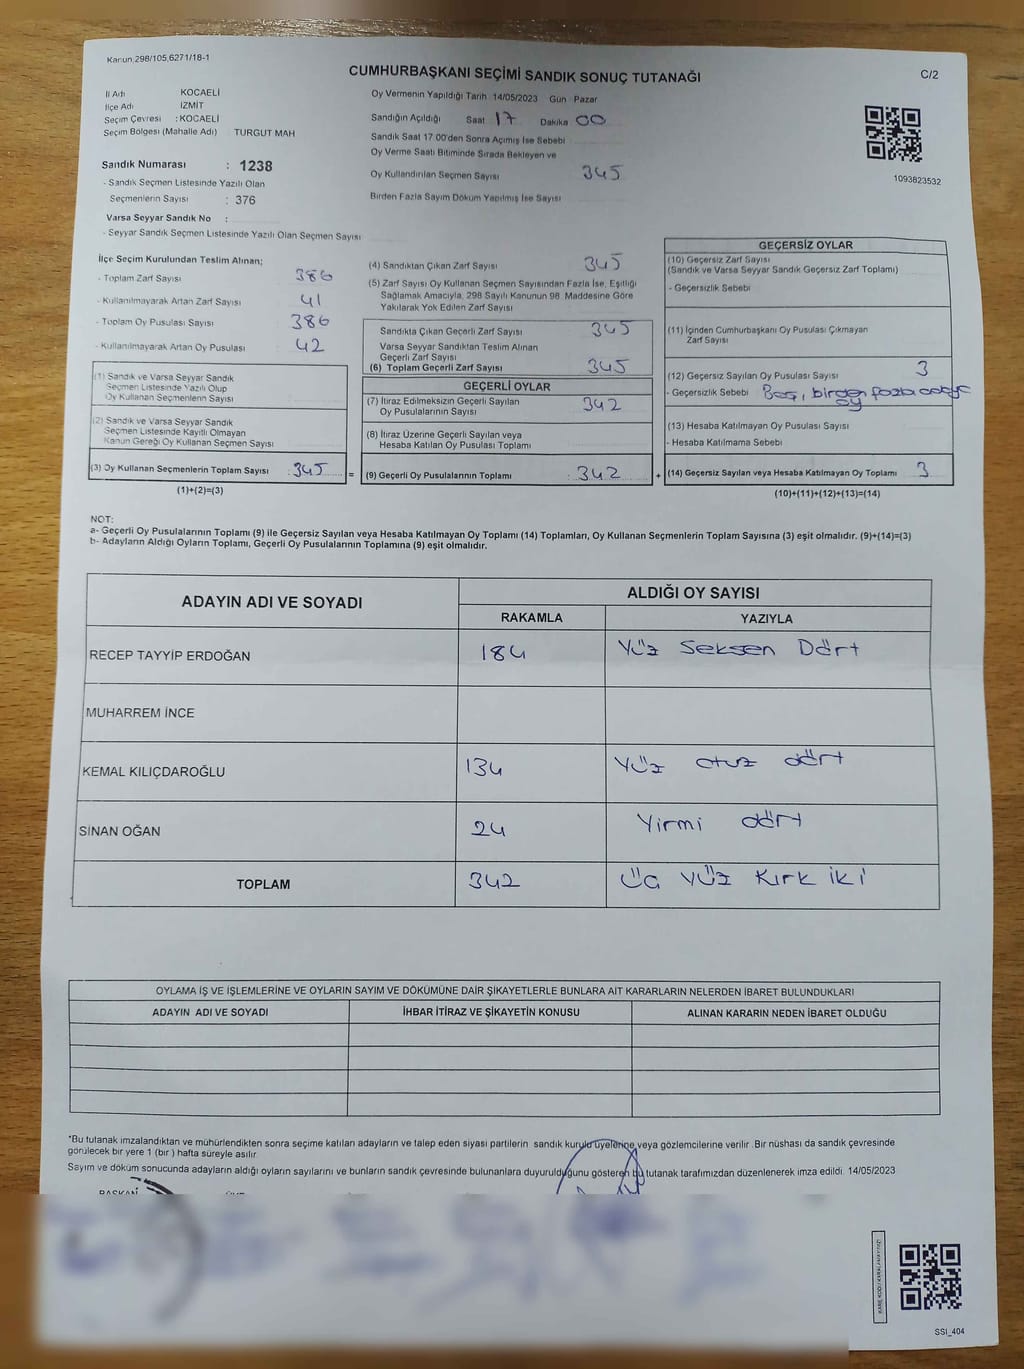 Kanun,298/105,6271/18-1
CUMHURBAŞKANI SEÇİMİ SANDIK SONUÇ TUTANAĞI
C/2
İl Adı KOCAELİ
İlçe Adı İZMİT
Seçim Çevresi : KOCAELİ
Seçim Bölgesi (Mahalle Adı) TURGUT MAH
Sandık Numarası : 1238
- Sandık Seçmen Listesinde Yazılı Olan
Seçmenlerin Sayısı : 376
Varsa Seyyar Sandık No :
- Seyyar Sandık Seçmen Listesinde Yazılı Olan Seçmen Sayısı
Oy Vermenin Yapıldığı Tarih 14/05/2023 Gün Pazar
Sandığın Açıldığı Saat 17 Dakika 00
Sandık Saat 17.00'den Sonra Açımış İse Sebebi
Oy Verme Saati Bitiminde Sırada Bekleyen ve
Oy Kullandırılan Seçmen Sayısı 345
Birden Fazla Sayım Döküm Yapılmış İse Sayısı
1093823532
İlçe Seçim Kurulundan Teslim Alınan;
- Toplam Zarf Sayısı 386
- Kullanılmayarak Artan Zarf Sayısı 41
- Toplam Oy Pusulası Sayısı 386
- Kullanılmayarak Artan Oy Pusulası 42
(1) Sandık ve Varsa Seyyar Sandık
Seçmen Listesinde Yazılı Olup
Oy Kullanan Seçmenlerin Sayısı
(2) Sandık ve Varsa Seyyar Sandık
Seçmen Listesinde Kayıtlı Olmayan
Kanun Gereği Oy Kullanan Seçmen Sayısı
(3) Oy Kullanan Seçmenlerin Toplam Sayısı : 345 =
(1)+(2)=(3)
(4) Sandıktan Çıkan Zarf Sayısı 345
(5) Zarf Sayısı Oy Kullanan Seçmen Sayısından Fazla İse, Eşitliği
Sağlamak Amacıyla, 298 Sayılı Kanunun 98. Maddesine Göre
Yakılarak Yok Edilen Zarf Sayısı
Sandıkta Çıkan Geçerli Zarf Sayısı 345
Varsa Seyyar Sandıktan Teslim Alınan
Geçerli Zarf Sayısı
(6) Toplam Geçerli Zarf Sayısı 345
GEÇERLİ OYLAR
(7) İtiraz Edilmeksizin Geçerli Sayılan
Oy Pusulalarının Sayısı 342
(8) İtiraz Üzerine Geçerli Sayılan veya
Hesaba Katılan Oy Pusulası Toplamı
(9) Geçerli Oy Pusulalarının Toplamı : 342 +
GEÇERSİZ OYLAR
(10) Geçersiz Zarf Sayısı
(Sandık ve Varsa Seyyar Sandık Geçersiz Zarf Toplamı)
- Geçersizlik Sebebi
(11) İçinden Cumhurbaşkanı Oy Pusulası Çıkmayan
Zarf Sayısı
(12) Geçersiz Sayılan Oy Pusulası Sayısı 3
- Geçersizlik Sebebi Boş, birden fazla
oy
(13) Hesaba Katılmayan Oy Pusulası Sayısı
- Hesaba Katılmama Sebebi
(14) Geçersiz Sayılan veya Hesaba Katılmayan Oy Toplamı 3
(10)+(11)+(12)+(13)=(14)
NOT:
a- Geçerli Oy Pusulalarının Toplamı (9) ile Geçersiz Sayılan veya Hesaba Katılmayan Oy Toplamı (14) Toplamları, Oy Kullanan Seçmenlerin Toplam Sayısına (3) eşit olmalıdır. (9)+(14)=(3)
b- Adayların Aldığı Oyların Toplamı, Geçerli Oy Pusulalarının Toplamına (9) eşit olmalıdır.
ADAYIN ADI VE SOYADI ALDIĞI OY SAYISI
RAKAMLA YAZIYLA
RECEP TAYYİP ERDOĞAN 184 Yüz Seksen Dört
MUHARREM İNCE
KEMAL KILIÇDAROĞLU 134 Yüz otuz dört
SİNAN OĞAN 24 Yirmi dört
TOPLAM 342 üç yüz Kırk iki
OYLAMA İŞ VE İŞLEMLERİNE VE OYLARIN SAYIM VE DÖKÜMÜNE DAİR ŞİKAYETLERLE BUNLARA AİT KARARLARIN NELERDEN İBARET BULUNDUKLARI
ADAYIN ADI VE SOYADI İHBAR İTİRAZ VE ŞİKAYETİN KONUSU ALINAN KARARIN NEDEN İBARET OLDUĞU
*Bu tutanak imzalandıktan ve mühürlendikten sonra seçime katılan adayların ve talep eden siyasi partilerin sandık kurulu üyelerine veya gözlemcilerine verilir. Bir nüshası da sandık çevresinde
görülecek bir yere 1 (bir) hafta süreyle asılır.
Sayım ve döküm sonucunda adayların aldığı oyların sayılarını ve bunların sandık çevresinde bulunanlara duyurulduğunu gösteren bu tutanak tarafımızdan düzenlenerek imza edildi. 14/05/2023
BAŞKAN
SSI_404